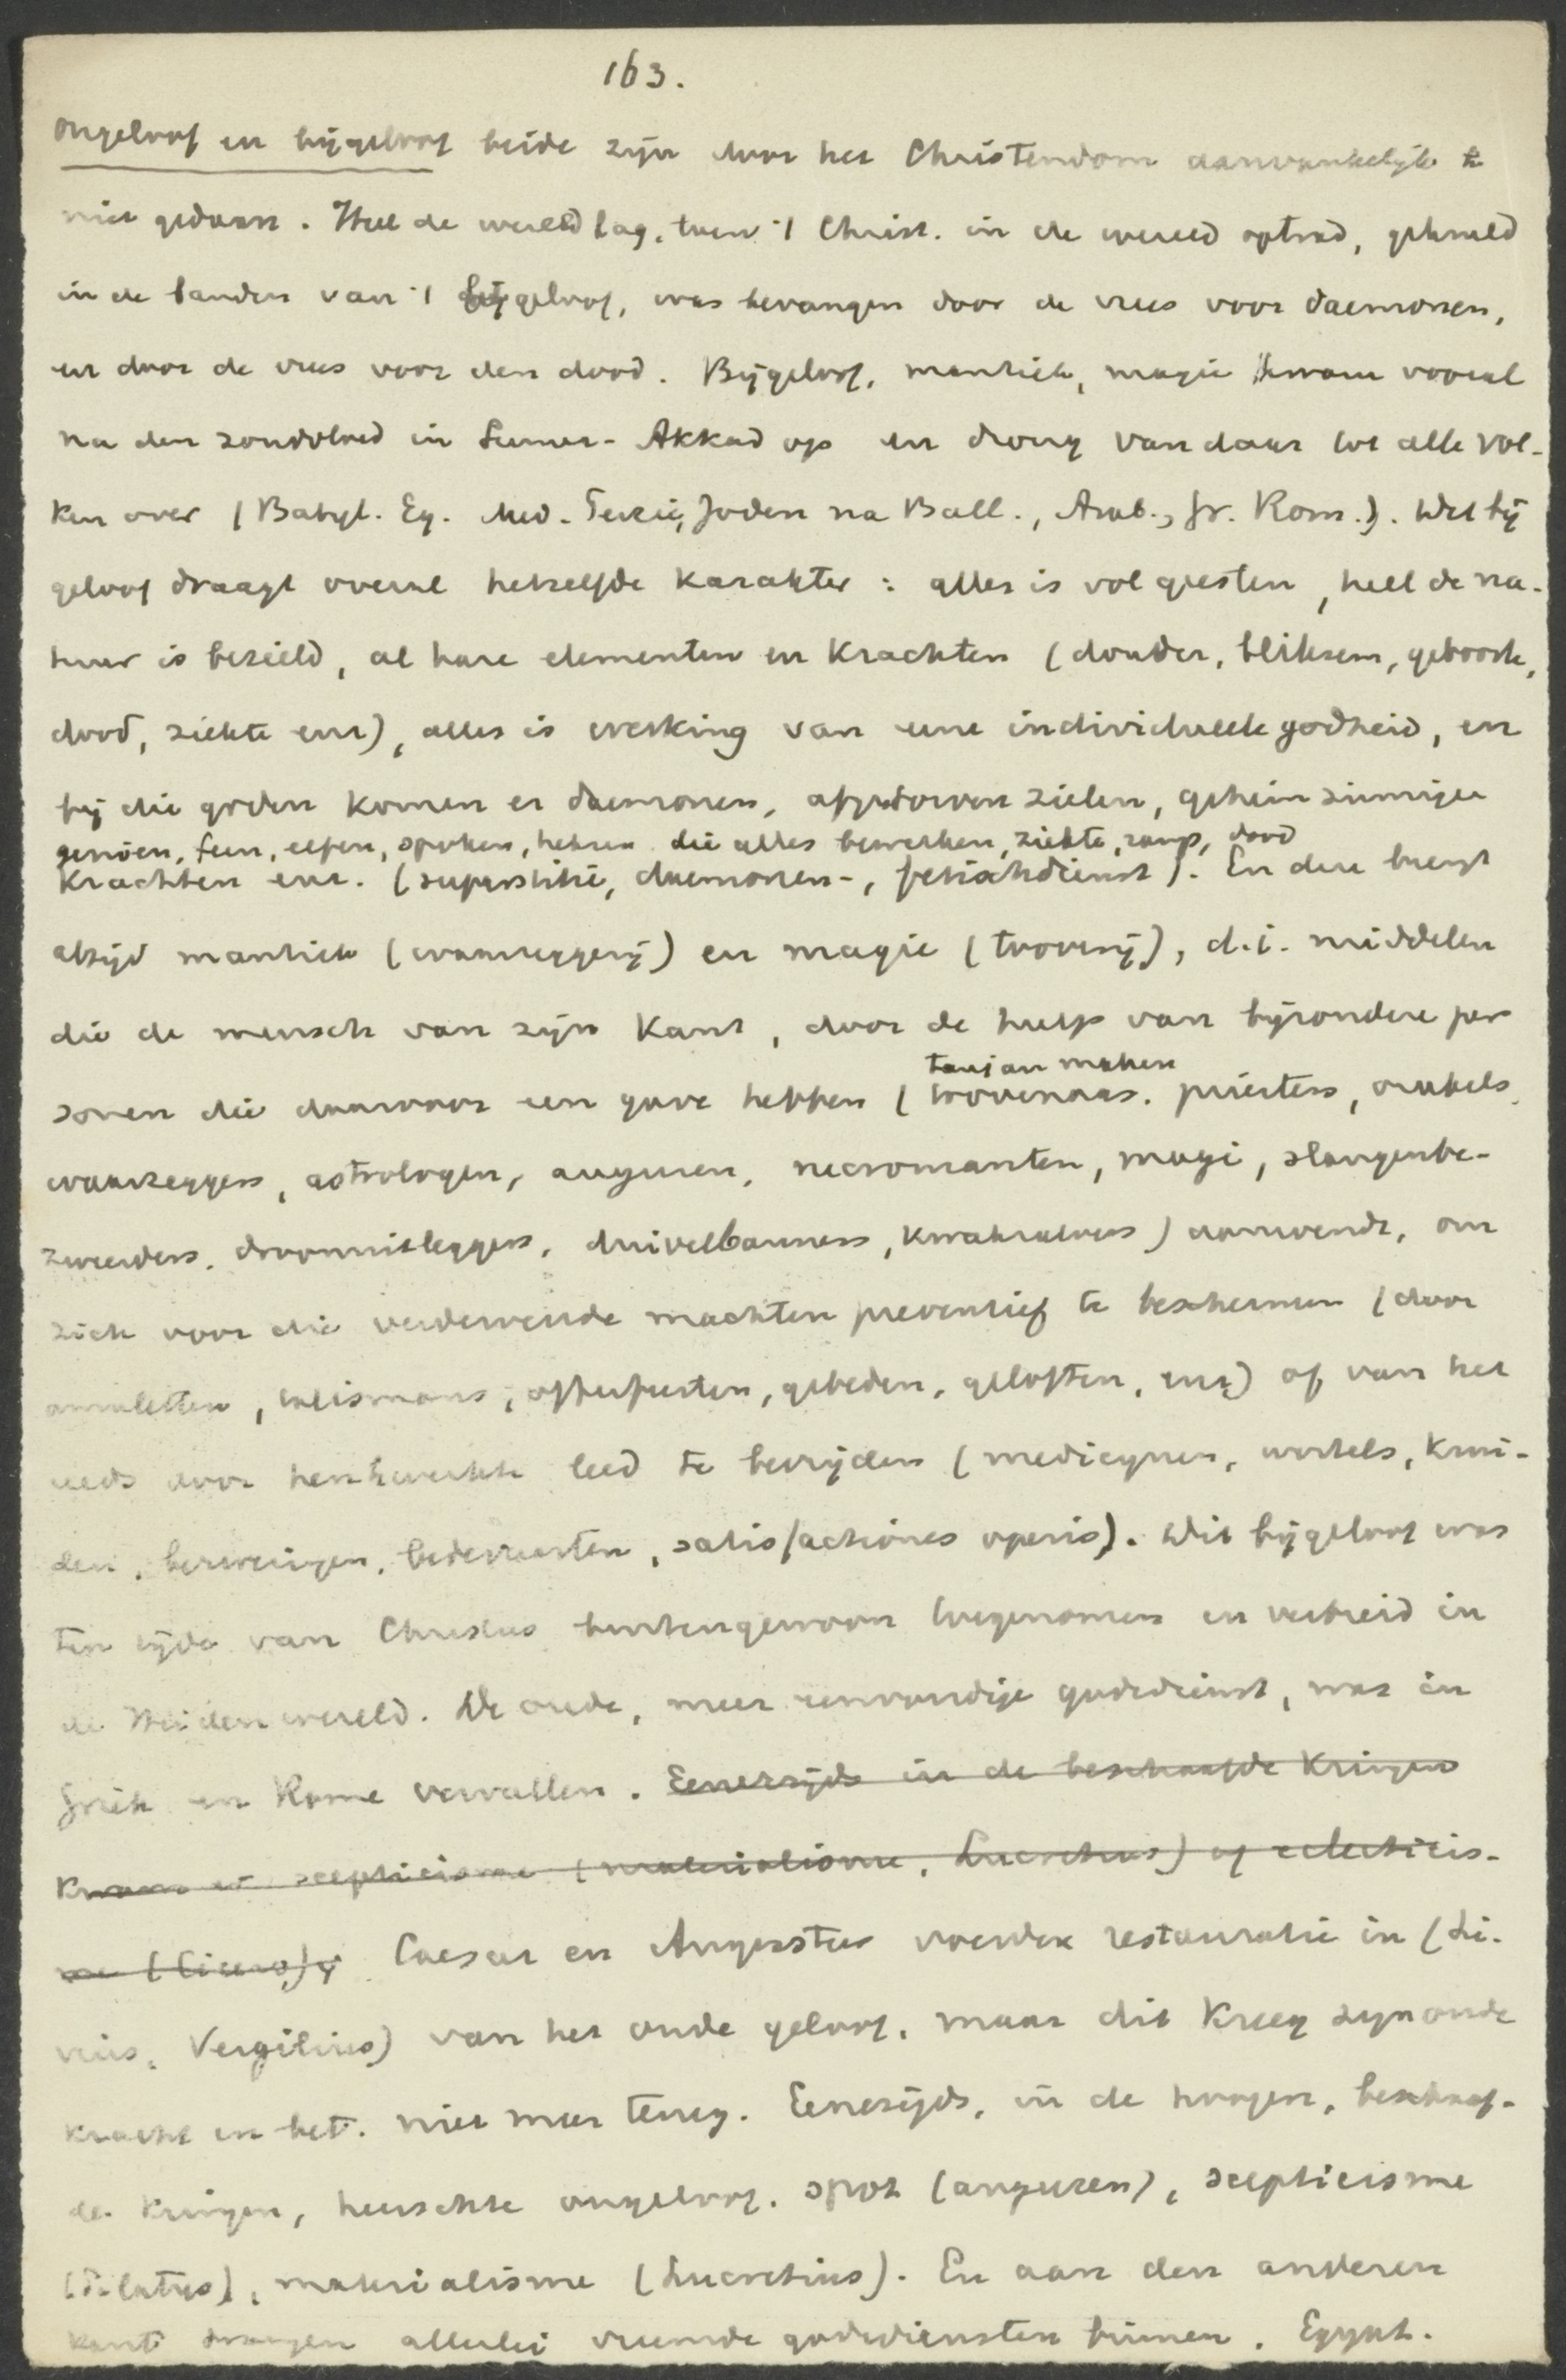 163.
Ongeloof en bijgeloof beide zijn door het Christendom aanvankelijk te
niet gedaan. Heel de wereld lag, toen 't Christ. in de wereld optrad, gekneld
in de banden van 't bijgeloof, was bevangen door de vrees voor daemonen,
en door de vrees voor den dood. Bijgeloof, mantiek, magie kwam vooral
na den zondvloed in Sumer-Akkad op en drong van daar tot alle vol-
ken over (Babyl. Eg. Med. Perzië, Joden na Ball., Arab., Gr. Rom.). Dit bij
geloof draagt overal hetzelfde karakter: alles is vol geesten, heel de na-
tuur is bezield, al hare elementen en krachten (donder, bliksem, geboorte,
dood, ziekte enz), alles is werking van eene individueele godheid, en
bij die goden komen er daemonen, afgestorven zielen, geheimzinnige
genien, feen, elfen, spoken, heksen die alles bewerken, ziekte, ramp, dood
krachten enz. (superstitie, daemonen-, fetischdienst). En deze brengt
altijd mantiek (waarzeggerij) en magie (tooverij), d.i. middelen
die de mensch van zijn kant, door de hulp van bijzondere per
sonen die daarvoor een gave hebben (toovenaars. priesters, orakels,
waarzeggers, astrologen, auguren, necromanten, magi, slangenbe-
zweerders, droomuitleggers, duivelbanners, kwakzalvers) aanwendt, om
zich voor die verdervende machten preventief te beschermen (door
amuletten, talismans, offerfeesten, gebeden, geloften, enz) of van het
reeds door hen bewerkte leed te bevrijden (medicynen, wortels, krui-
den, bezweringen, bedevaarten, satisfactiones operis). Dit bijgeloof was
ten tijde van Christus buitengewoon toegenomen en verbreid in
de Heidenwereld. De oude, meer eenvoudige godsdienst, was in
Griek en Rome vervallen. Eenerzijds in de beschaafde kringen
kwam er scepticisme (materialisme, Lucretius) of eclecticis-
me (Cicero) Caesar en Augustus voerden restauratie in (Li-
vius, Vergilius) van het oude geloof, maar dit kreeg zijn oude
kracht en bet. niet meer terug. Eenerzijds, in de hoogere, beschaaf-
de kringen, heerschte ongeloof. spot (auguren), scepticisme
(Pilatus), materialisme (Lucretius). En aan den anderen
kant drongen allerlei vreemde godsdiensten binnen. Egypt.